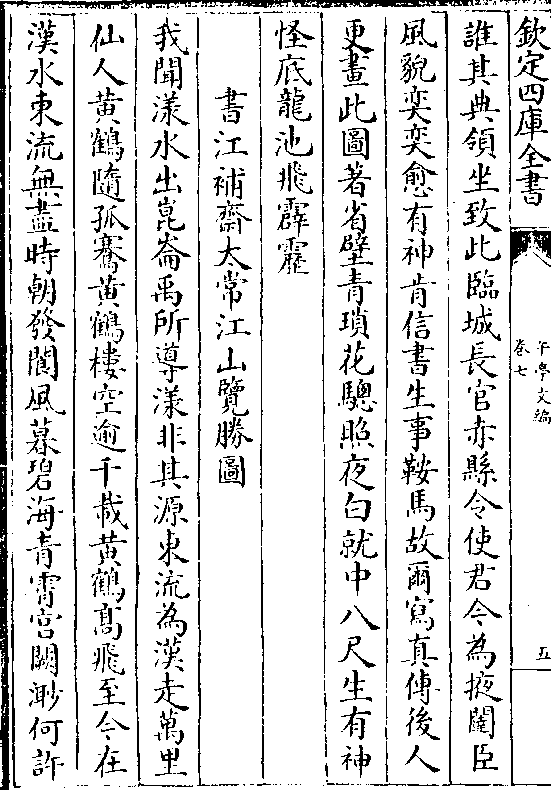 欽定四庫全書
卷七
五
誰其典領坐致此臨城長官赤縣令使君今為掖闥臣
風貌奕奕愈有神肯信書生事鞍馬故爾寫真傳後人
更畫此圖著省壁青瑣花驄照夜白就中八尺生有神
怪底龍池飛霹靂
書江補齋太常江山覽勝圖
我聞漾水出崑崙禹所導漾非其源東流為漢走萬里
仙人黄鶴隨孤騫黄鶴樓空逾千載黄鶴高飛至今在
漢水東流無盡時朝發閬風暮碧海青霄宫闕渺何許